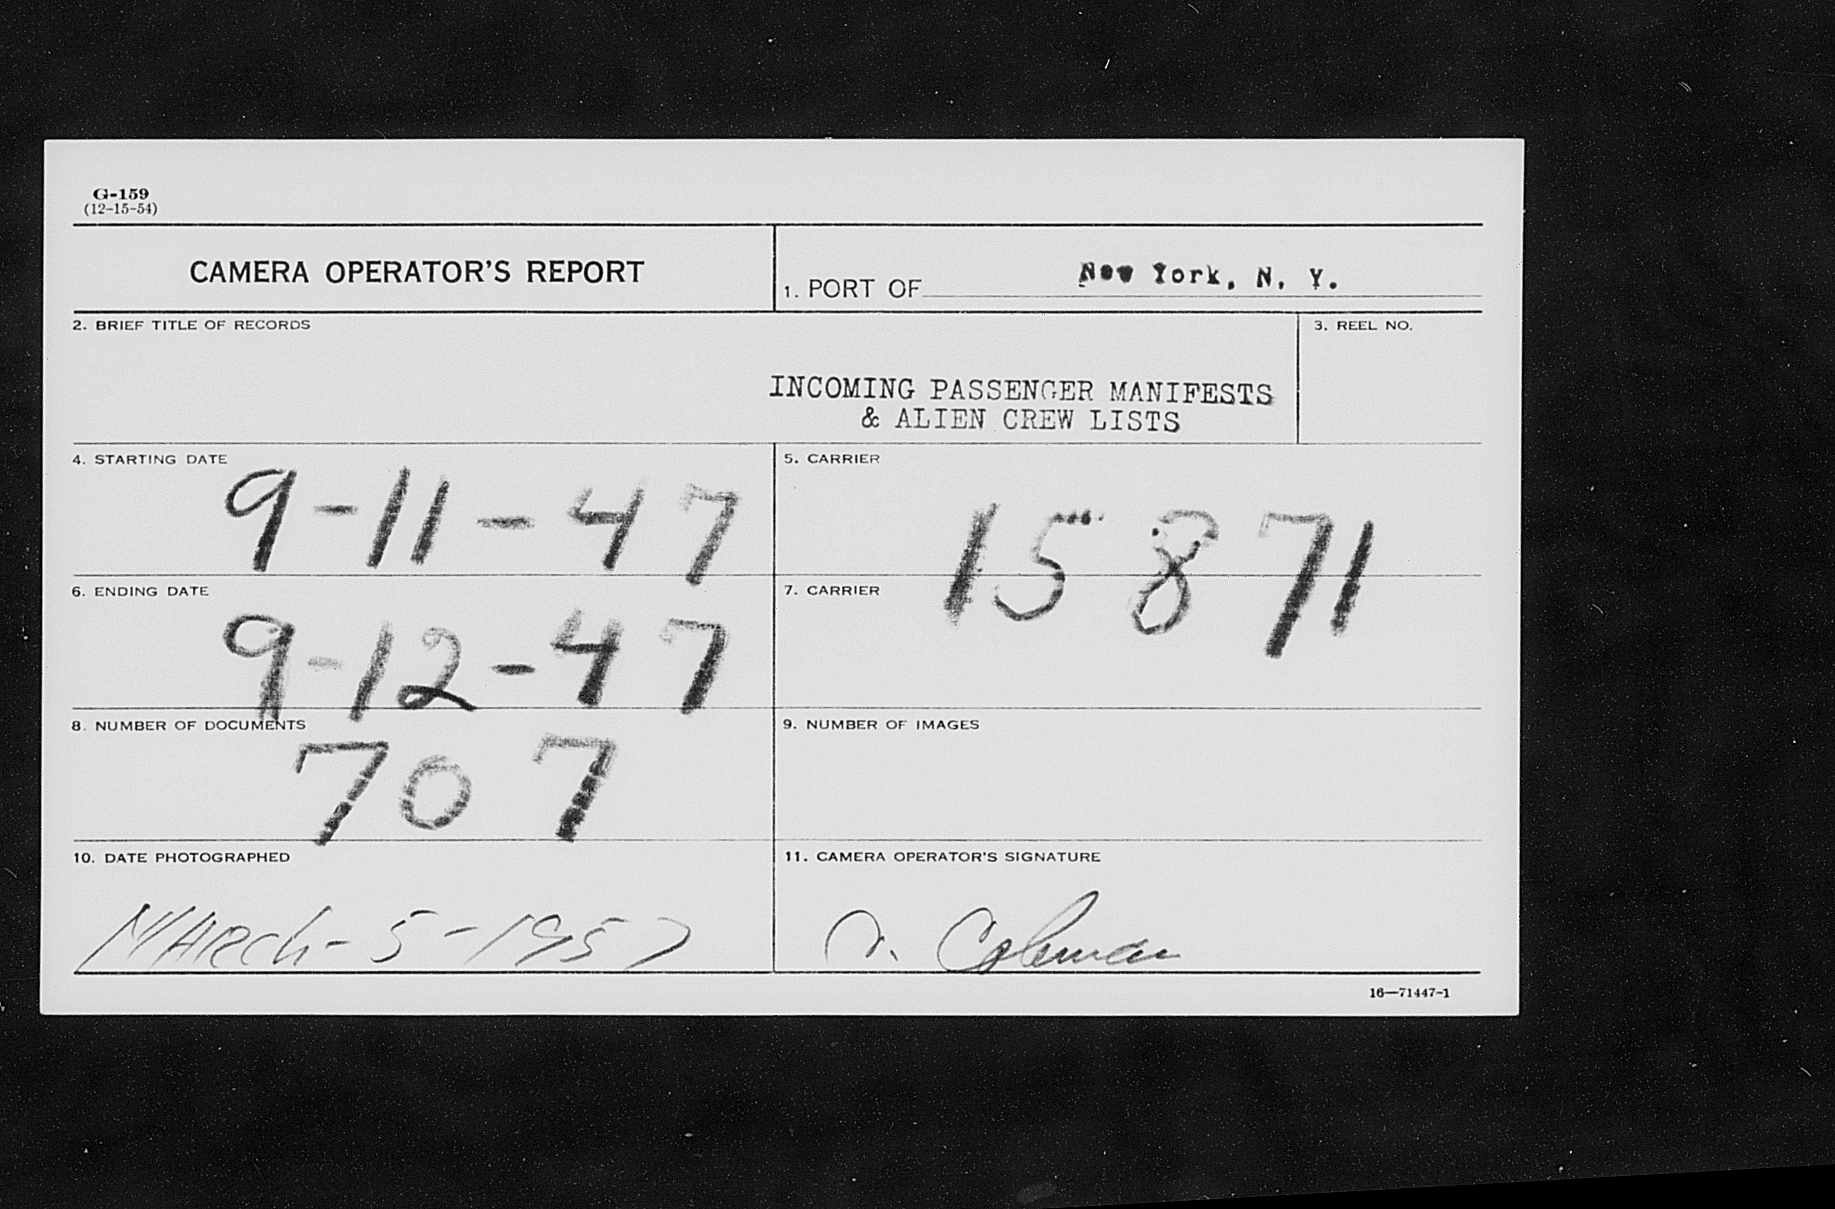 G-159
(12-15-54)
CAMERA OPERATOR'S REPORT
1. PORT OF New York, N. Y.
2. BRIEF TITLE OF RECORDS
INCOMING PASSENGER MANIFESTS
& ALIEN CREW LISTS
3. REEL NO.
4. STARTING DATE
9-11-47
5. CARRIER
15871
6. ENDING DATE
9-12-47
7. CARRIER
8. NUMBER OF DOCUMENTS
707
9. NUMBER OF IMAGES
10. DATE PHOTOGRAPHED
MARch-5-1957
11. CAMERA OPERATOR'S SIGNATURE
Coleman
16—71447-1